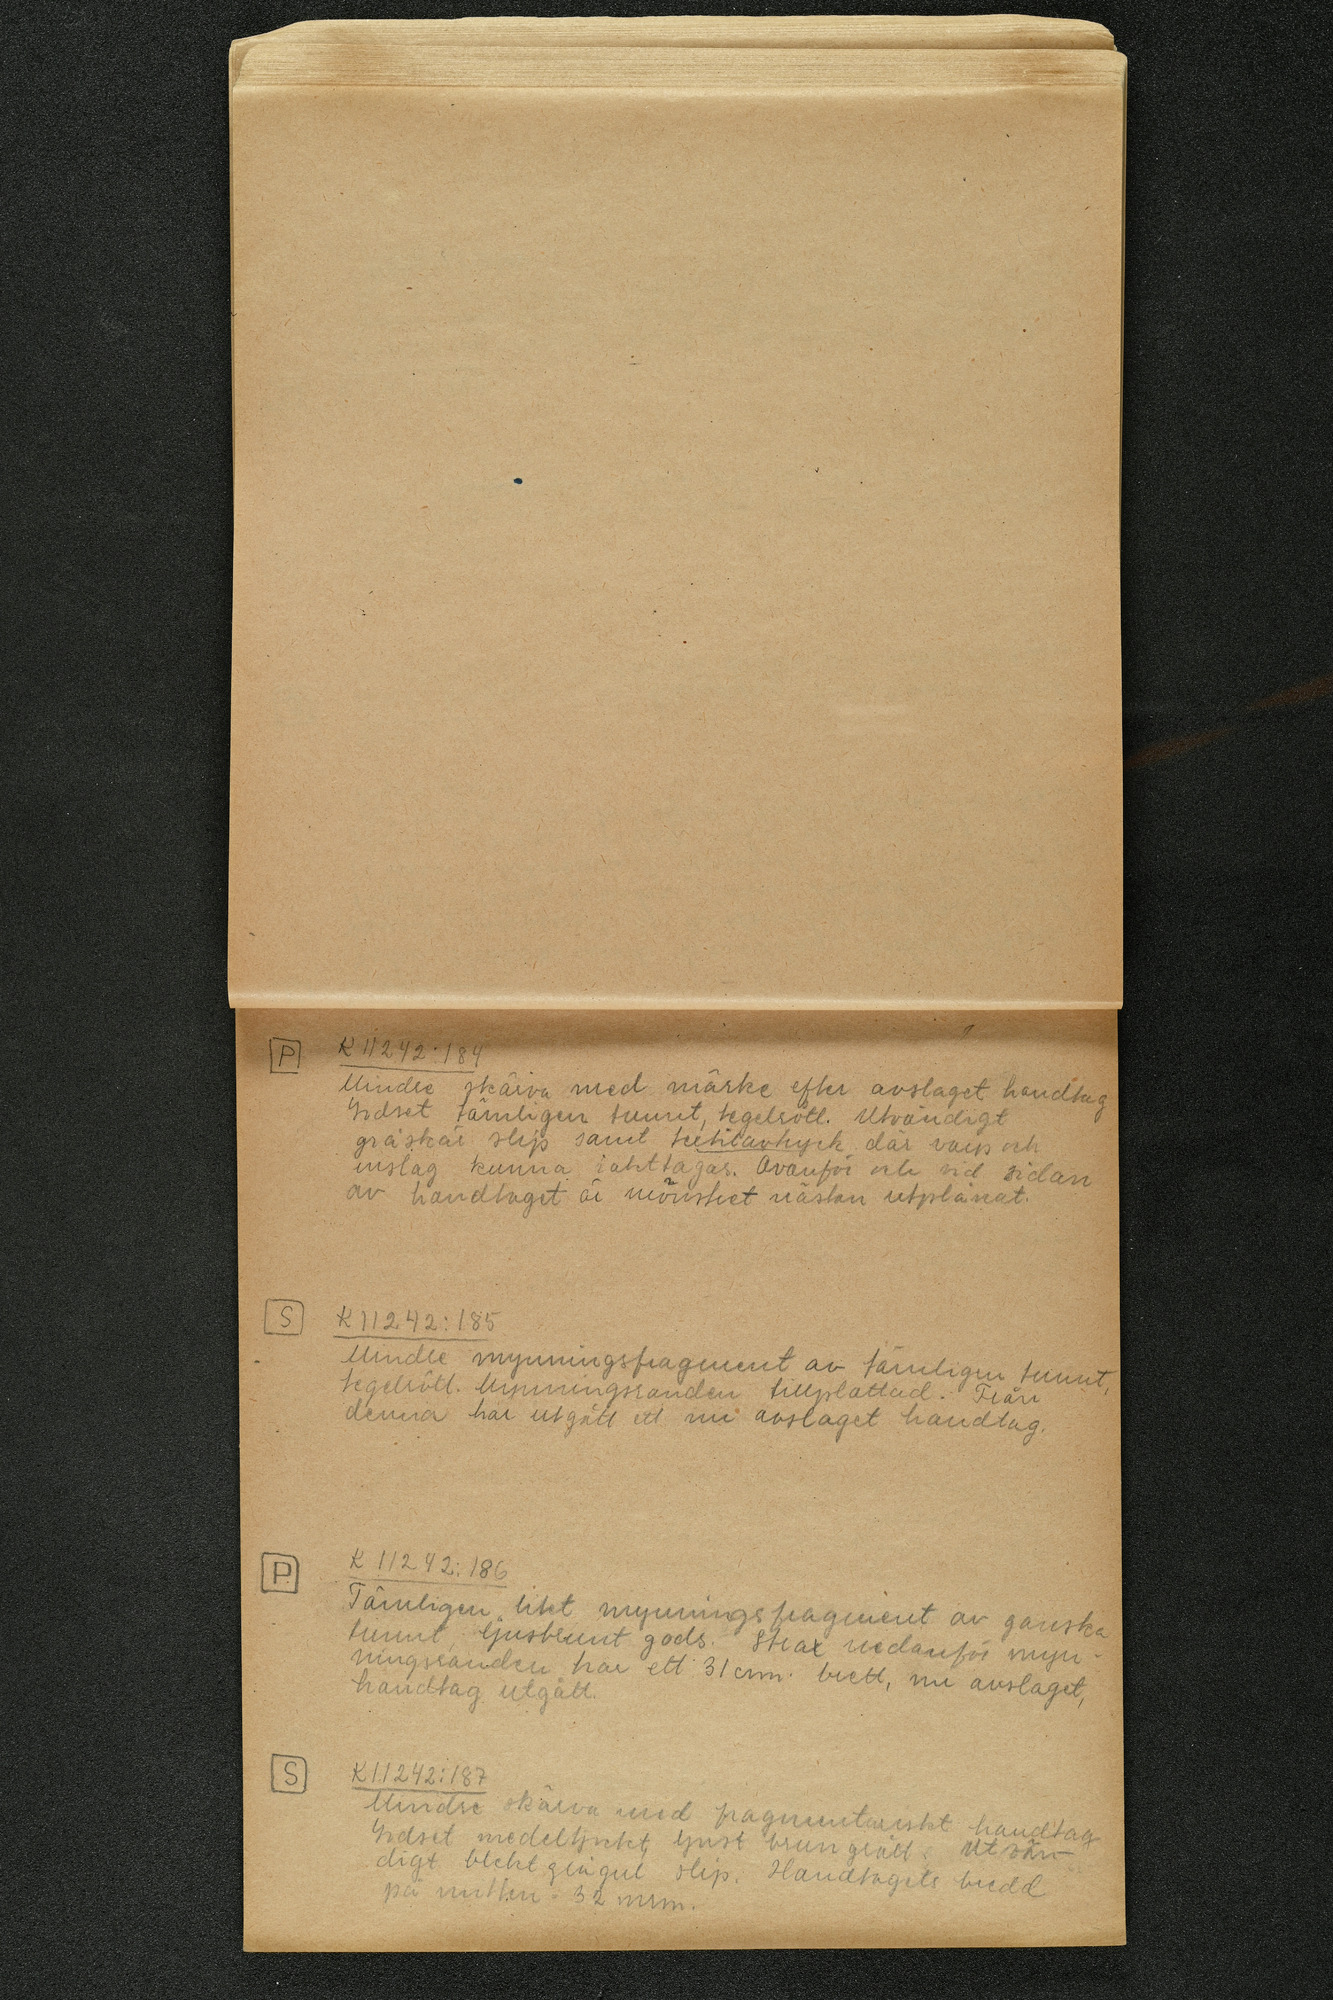 P K 11242:184
Mindre skärva med märke efter avslaget handtag
Godset tämligen tunnt, tegelrött. Utvändigt
gråskär slip samt textilavtryck där varp och
inslag kunna iakttagas. Ovanför och vid sidan
av handtaget är mönstret nästan utplånat.
S K 11242:185
Mindre mynningsfragment av tämligen tunnt,
tegelrött. Mynningsranden tillplattad. Från
denna har utgått ett nu avslaget handtag.
P K 11242:186
Tämligen litet mynningsfragment av ganska
tunnt, ljusbrunt gods. Strax nedanför myn-
ningsranden har ett 31 cm. brett, nu avslaget,
handtag utgått.
S K 11242:187
Mindre skärva med fragmentariskt handtag
Godset medeltjockt, ljust brungrått. Utvän-
digt blekt grågul slip. Handtagets bredd
på mitten = 32 mm.